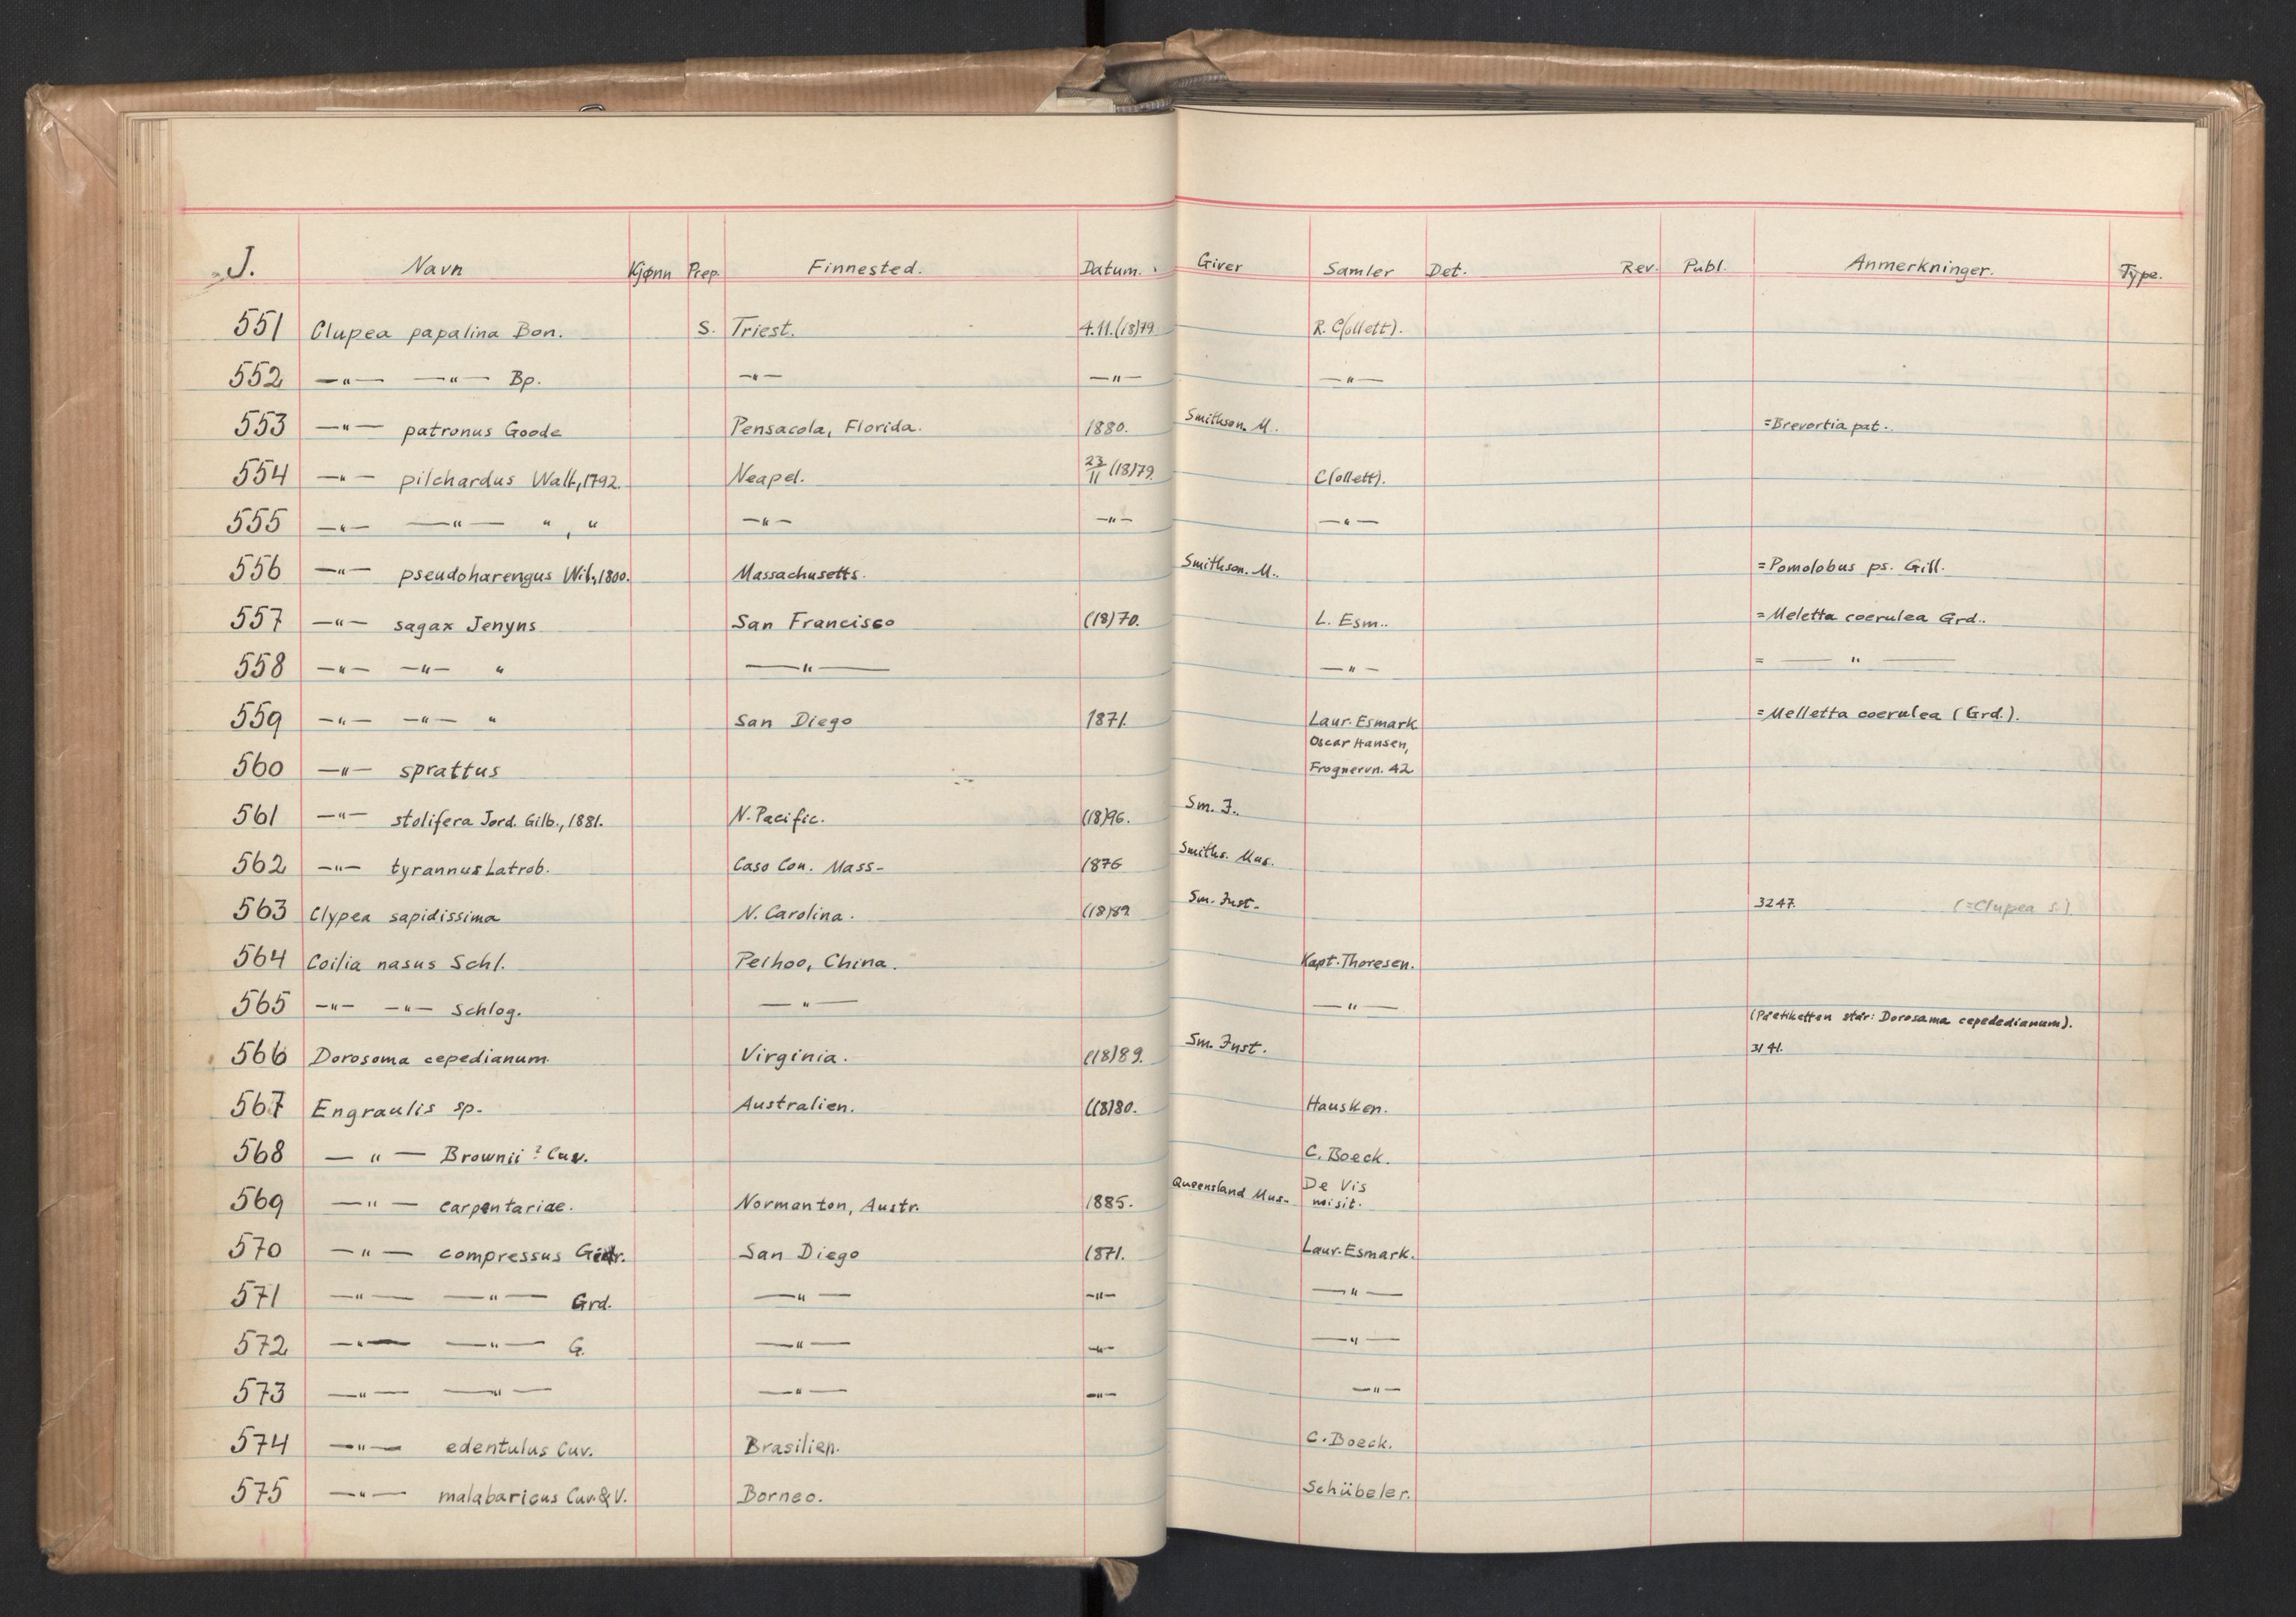 J. Navn Kjønn Prep. Finnested. Datum. Giver Samler Det. Rev. Publ. Anmerkninger. Type.
551 Clupea papalina Bon. S. Triest. 4.11.(18)79. R. C(ollett).
552 —"— —"— Bp. —"— —"— —"—
553 —"— patronus Goode Pensacola, Florida. 1880. Smithson. M. =Brevortia pat..
554 —"— pilchardus Walb, 1792. Neapel. 23/11 (18)79. C(ollett).
555 —"— —"— " , " —"— —"— —"—
556 —"— pseudoharengus Wil., 1800. Massachusetts. Smithson. M.. =Pomolobus ps. Gill.
557 —"— sagax Jenyns San Francisco (18)70. L. Esm.. =Meletta coerulea Grd..
558 —"— —"— " —"— —"— = —"—
559 —"— —"— " San Diego 1871. Laur. Esmark =Melletta coerulea (Grd.).
560 —"— sprattus Oscar Hansen,
Frognervn. 42
561 —"— stolifera Jord. Gilb., 1881. N. Pacific. (18)96. Sm. I..
562 —"— tyrannus Latrob. Caso Con. Mass- 1876 Smiths. Mus.
563 Clypea sapidissima N. Carolina. (18)89 Sm. Inst. 3247. (=Clupea s.)
564 Coilia nasus Schl. Peihoo, China. Kapt. Thoresen.
565 —"— —"— Schlog. —"— —"—
(På etiketten står: Dorosama cepededianum).
566 Dorosoma cepedianum. Virginia. (18)89. Sm. Inst. 3141.
567 Engraulis sp. Australien. (18)80. Hausken.
568 —"— Brownii ? Cuv. C. Boeck.
569 —"— carpentariae. Normanton, Austr. 1885. Queensland Mus. De Vis
misit.
570 —"— compressus Girdr. San Diego 1871. Laur. Esmark.
571 —"— —"— Grd. —"— —"— —"—
572 —"— —"— G. —"— —"— —"—
573 —"— —"— —"— —"— —"—
574 —"— edentulus Cuv. Brasilien. C. Boeck.
575 —"— malabaricus Cuv. & V. Borneo. Schübeler.